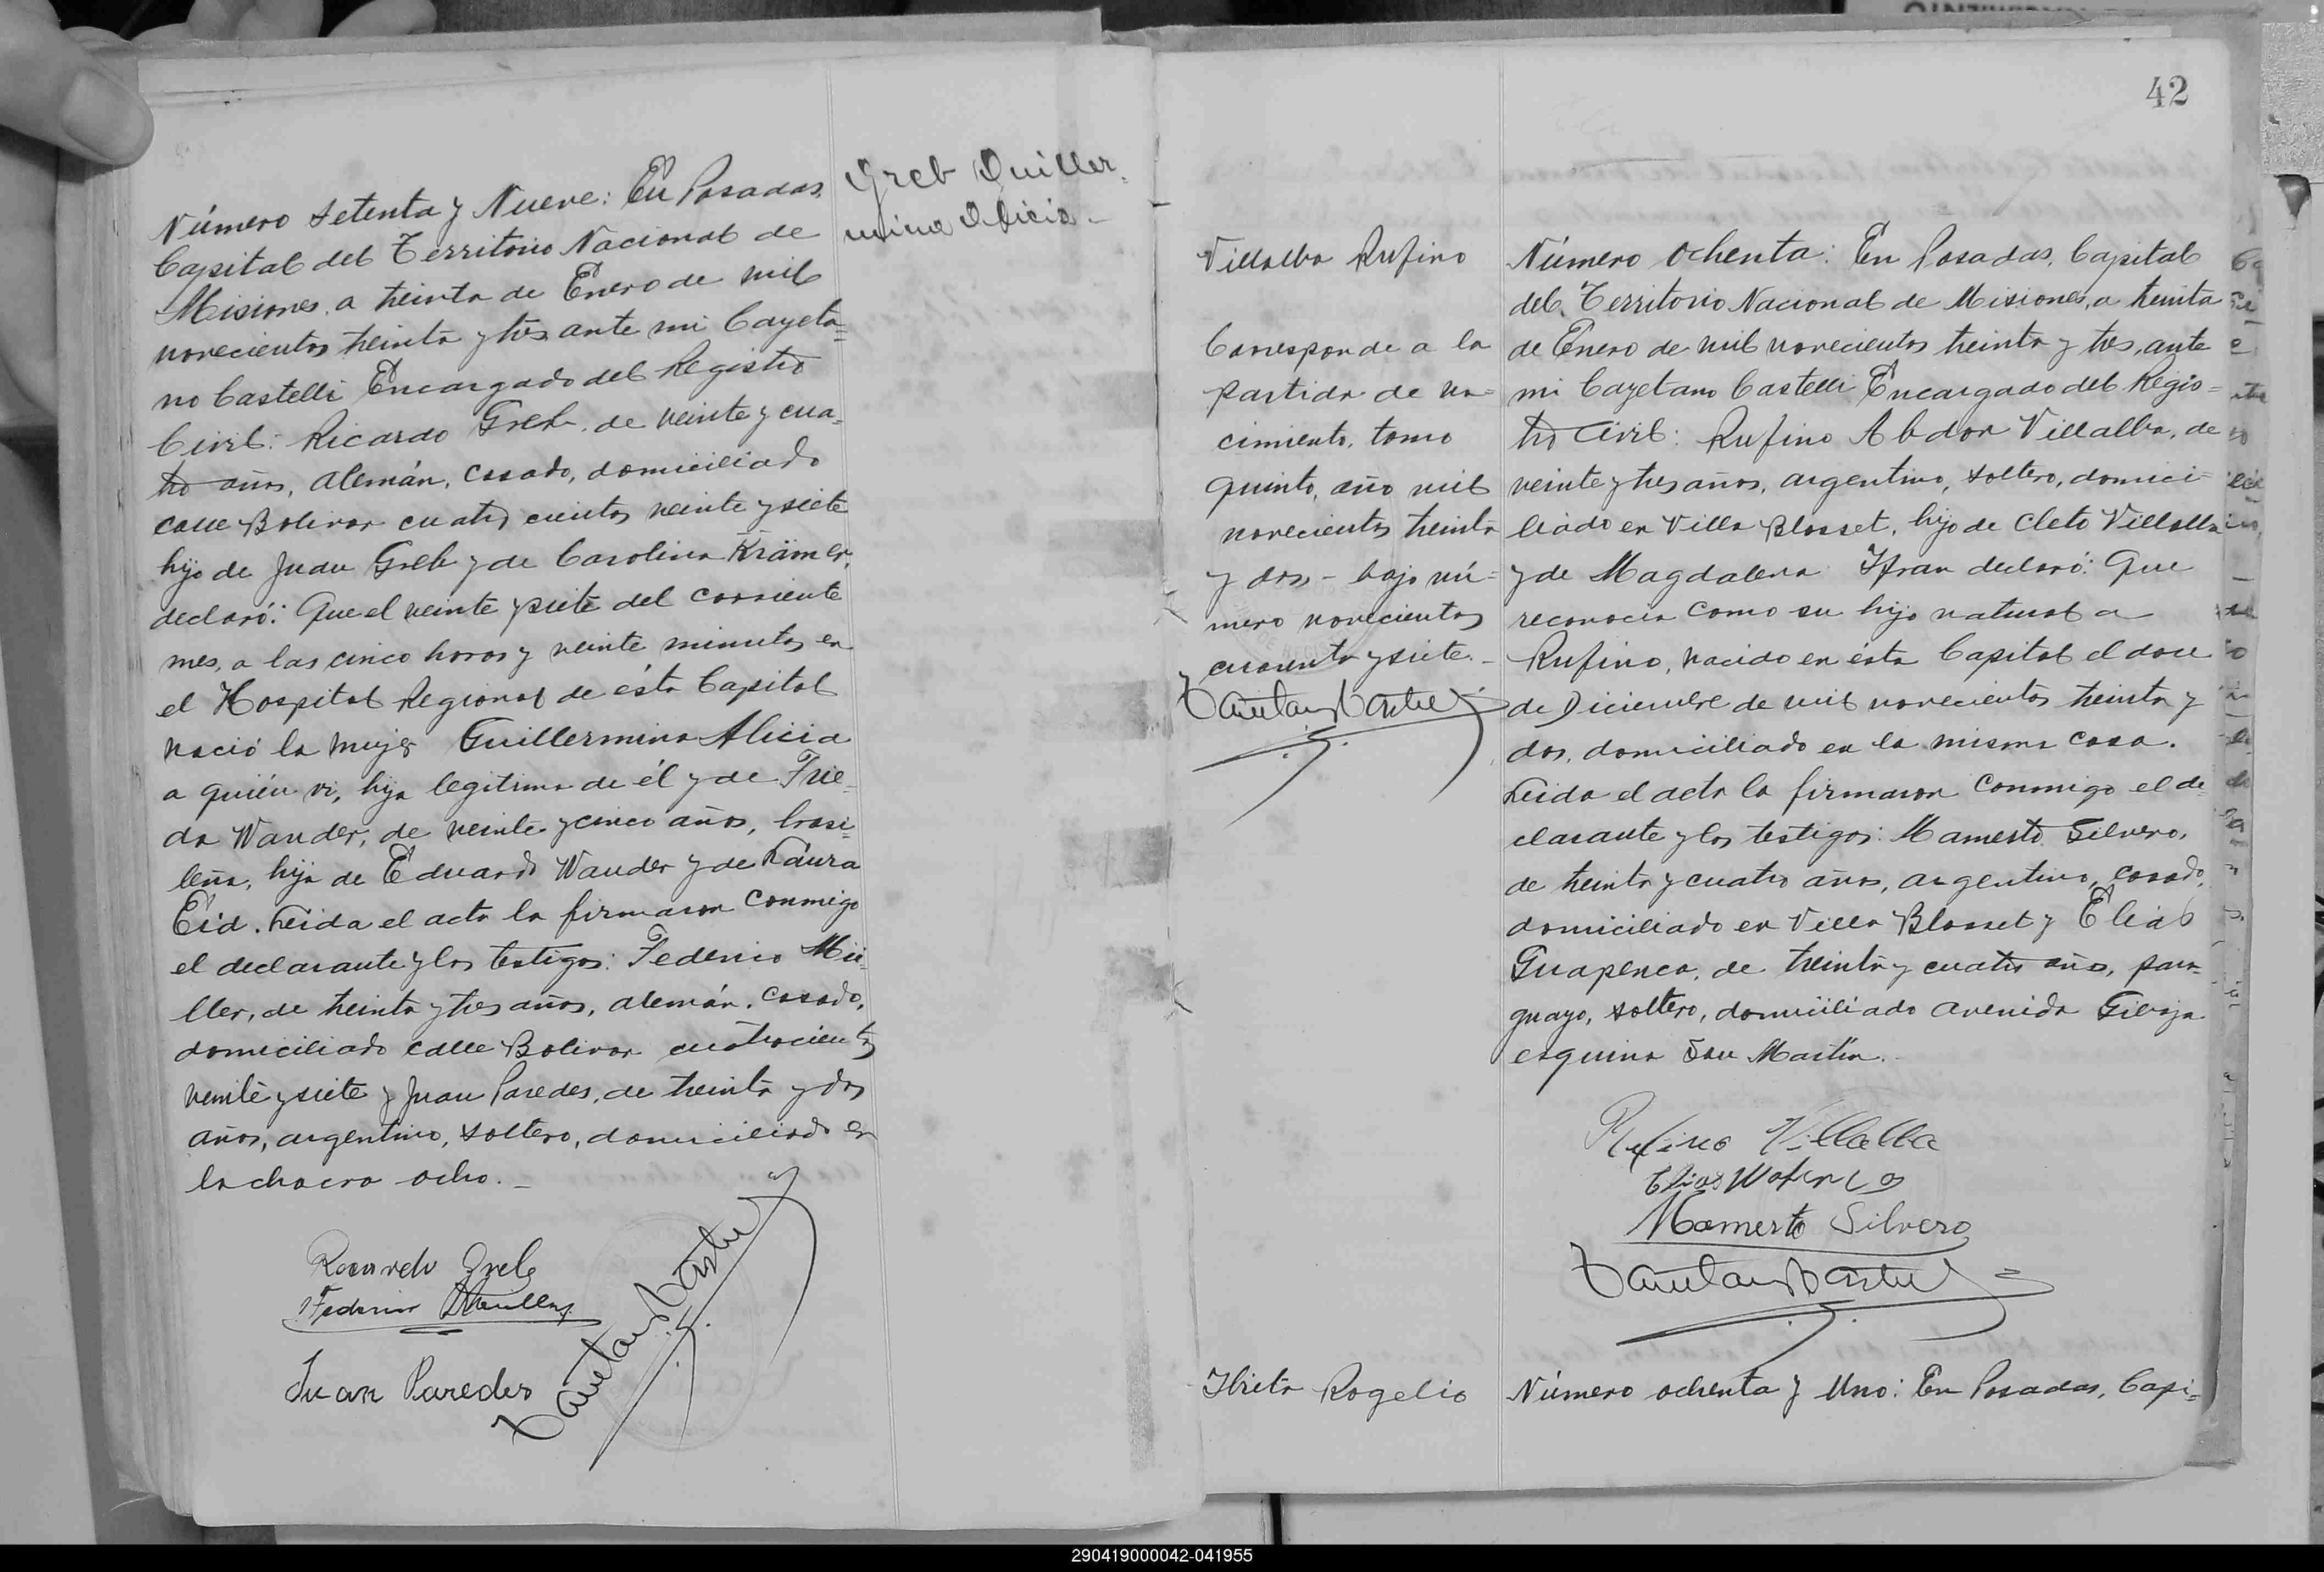 Número setenta y Nueve: En Posadas,
Capital del Territorio Nacional de
Misiones, a treinta de Enero de mil
novecientos treinta y tres ante mi Cayeta=
no Castelli Encargado del Registro
Civil: Ricardo Greb, de veinte y cua-
tro años, alemán, casado, domiciliado
calle Bolivar cuatro cientos veinte y siete
hijo de Juan Greb y de Carolina Krämer,
declaró: Que el veinte y siete del corriente
mes, a las cinco horas y veinte minutos en
el Hospital Regional de ésta Capital
nació la mujer Guillermina Alicia
a quién vi, hija legitima de él y de Frie-
da Wander, de veinte y cinco años, brasi=
leña, hija de Eduardo Wander y de Laura
Eid. Leida el acta la firmaron conmigo
el declarante y los testigos: Federico Mü-
ller, de treinta y tres años, alemán, casado,
domiciliado calle Bolivar cuatrocientos
veinte y siete y Juan Paredes, de treinta y dos
años, argentino, soltero, domiciliado en
la chacra ocho. _
Ricardo Greb
Federico Müller
Juan Paredes
Greb Guiller-
mina Alicia -
42
Villalba Rufino
Corresponde a la
partida de na=
cimiento, tomo
quinto, año mil
novecientos treinta
y dos - bajo nú=
mero novecientos
cuarenta y siete. -
Número ochenta: En Posadas, Capital
del Territorio Nacional de Misiones, a treinta
de Enero de mil novecientos treinta y tres, ante
mi Cayetano Castelli Encargado del Regis=
tro Civil: Rufino Abdon Villalba, de
veinte y tres años, argentino, soltero, domici-
liado en Villa Blosset, hijo de Cleto Villalba
y de Magdalena Ifran declaró: Que
reconocia como su hijo natural a
Rufino, nacido en ésta Capital el doce
de Diciembre de mil novecientos treinta y
dos, domiciliado en la misma casa.
Leida el acta la firmaron conmigo el de-
clarante y los testigos: Mamerto Silvero,
de treinta y cuatro años, argentino, casado,
domiciliado en Villa Blosset y Elias
Guapenca, de treinta y cuatro años, para-
guayo, soltero, domiciliado avenida Gibaja
esquina San Martín.
Rufino Villalba
Mamerto Silvero
Ibieta Rogelio
Número ochenta y Uno: En Posadas, Capi=
290419000042-041955